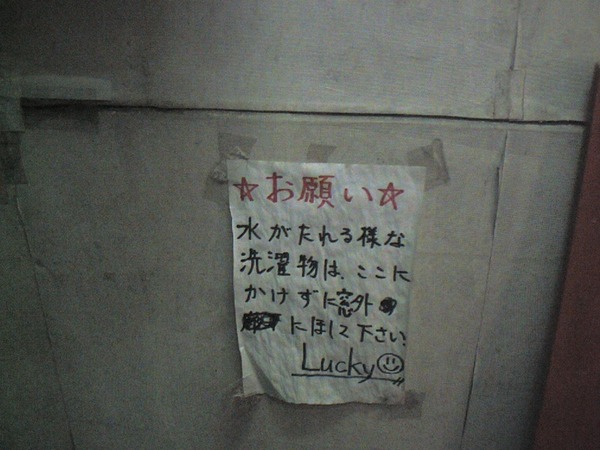 ☆お願い☆
水がたれる様な
洗濯物は、ここに
かけずに窓外
にほして下さい!
Lucky☺